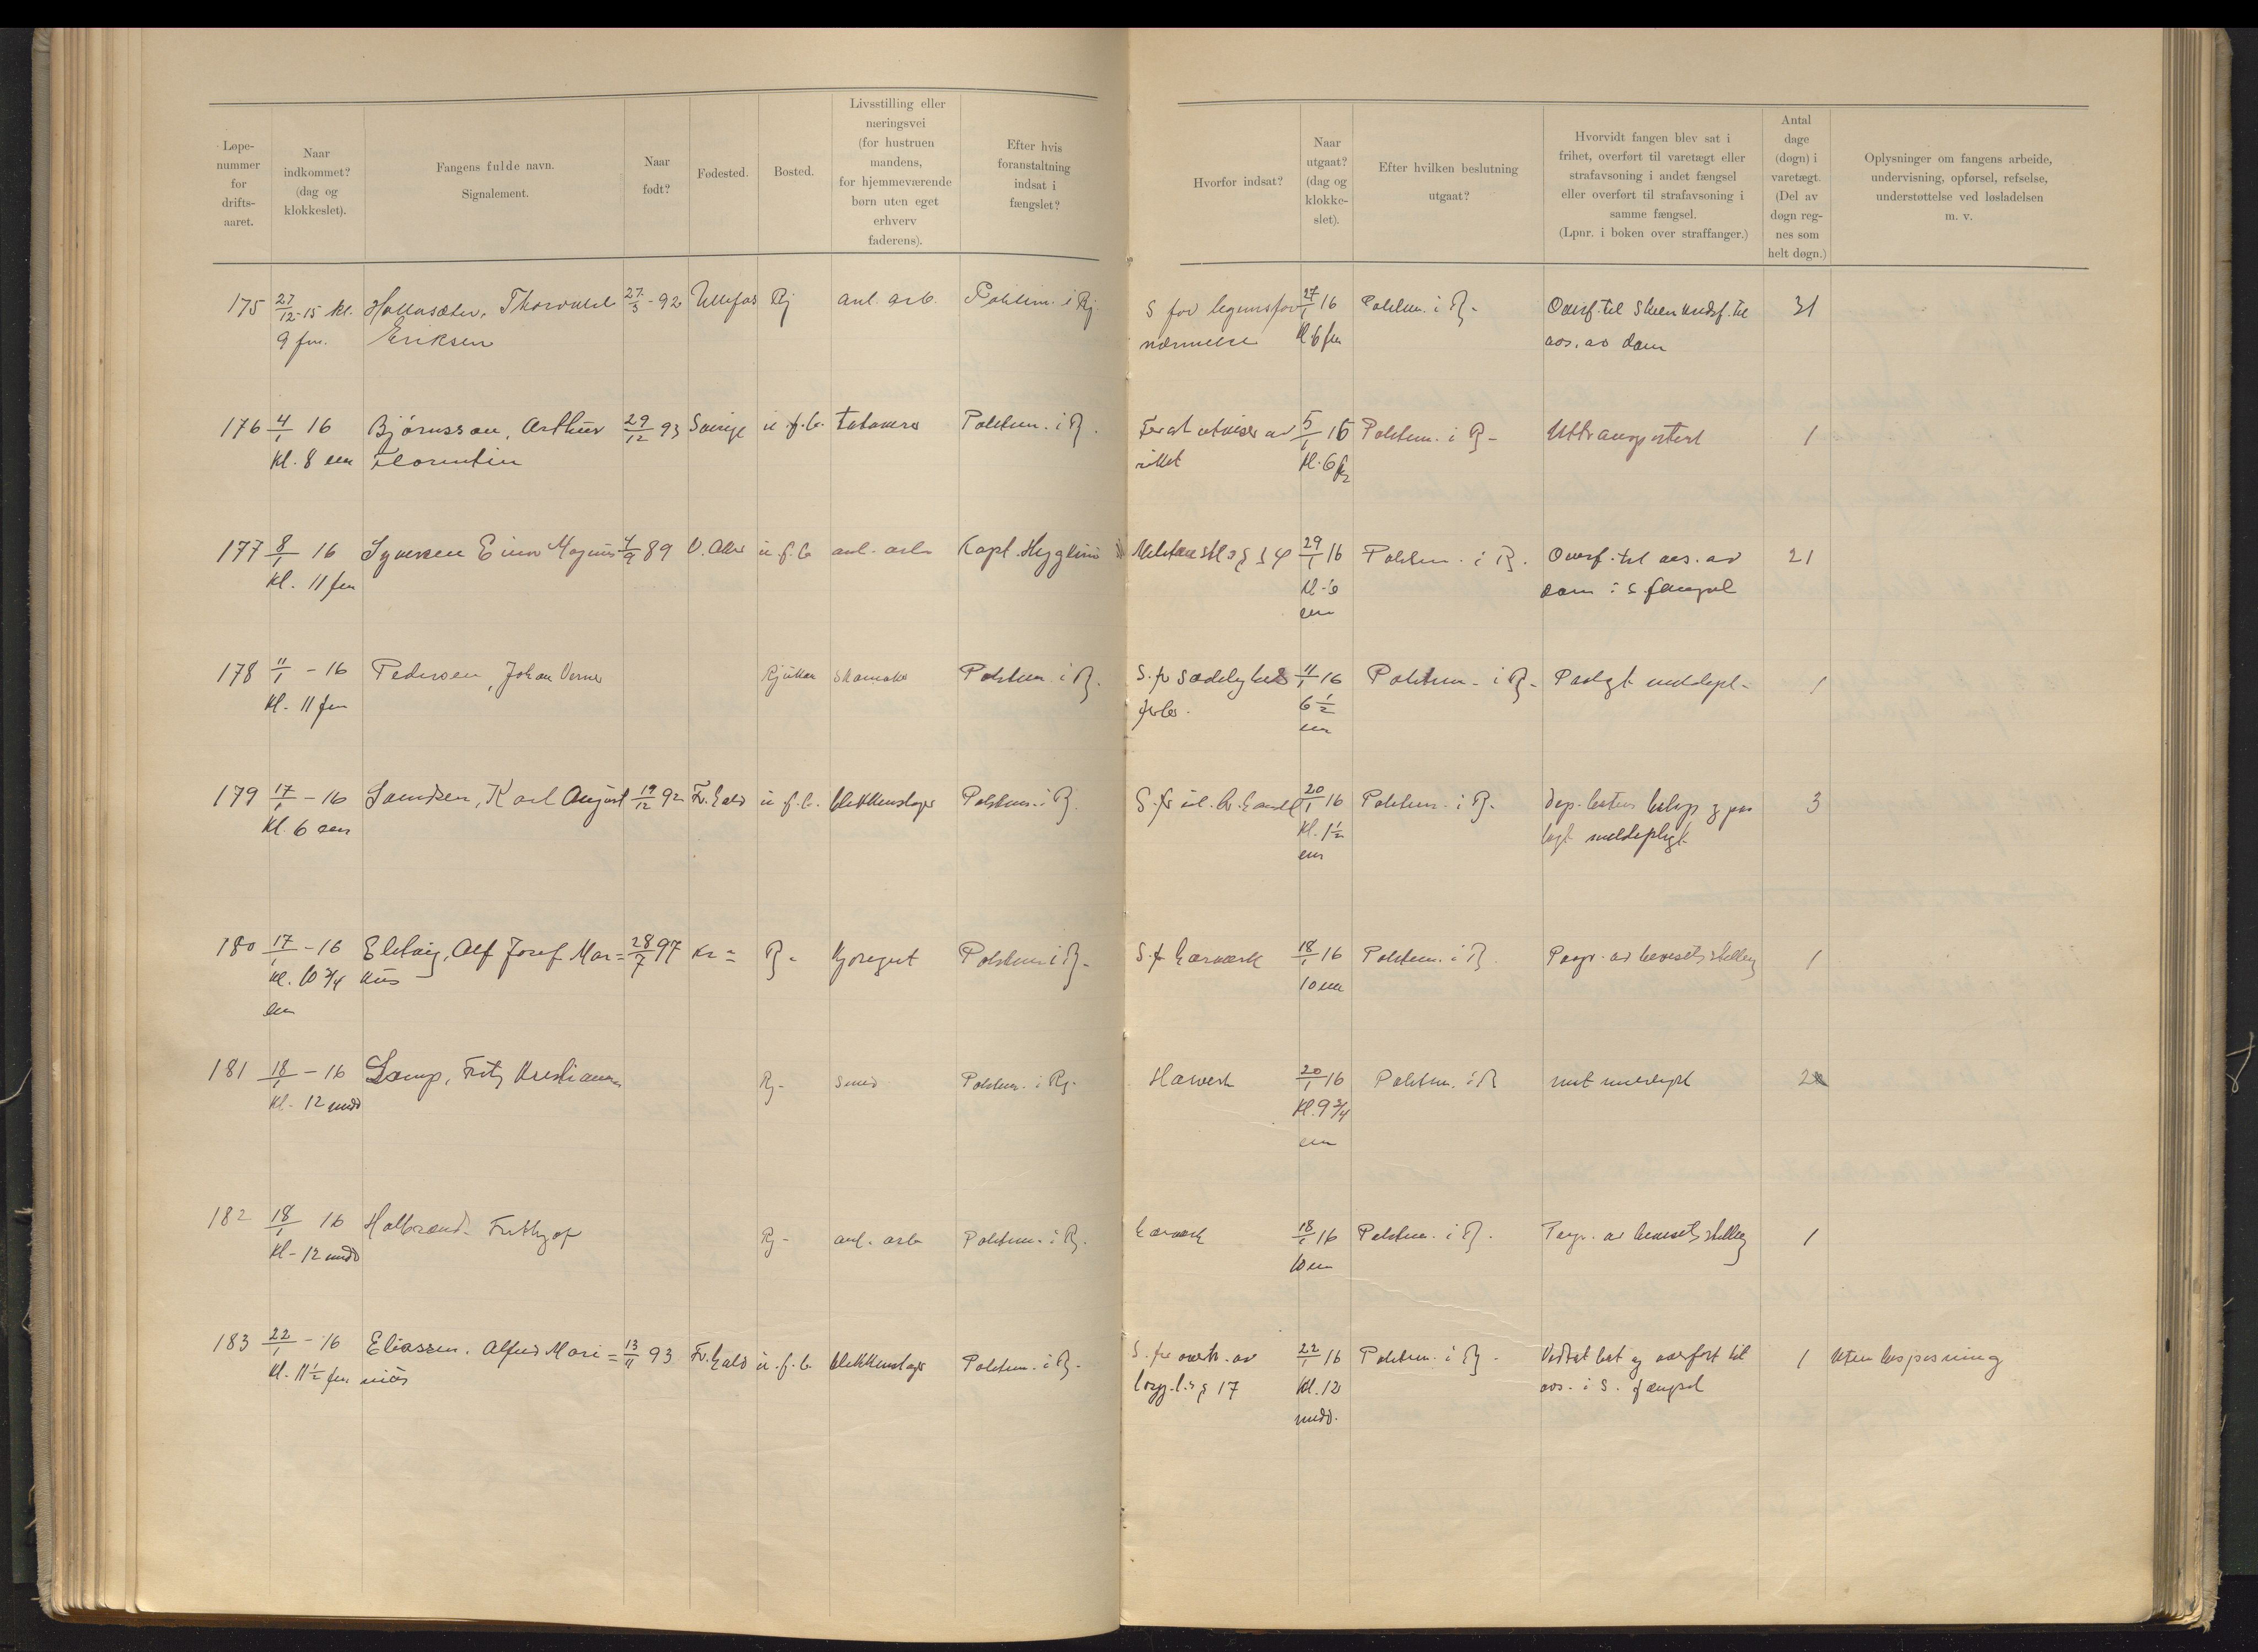 Løpe-
nummer
for
drifts-
aaret.
Naar
indkommet?
(dag og
klokkeslet).
Fangens fulde navn.
Signalement.
Naar
født?
Fødested.
Bosted.
Livsstilling eller
næringsvei
(for hustruen
mandens,
for hjemmeværende
børn uten eget
erhverv
faderens).
Efter hvis
foranstaltning
indsat i
fængslet?
Hvorfor indsat?
Naar
utgaat?
(dag og
klokke-
slet).
Efter hvilken beslutning
utgaat?
Hvorvidt fangen blev sat i
frihet, overført til varetægt eller
strafavsoning i andet fængsel
eller overført til strafavsoning i
samme fængsel.
(Lpnr. i boken over straffanger.)
Antal
dage
(døgn) i
varetægt.
(Del av
døgn reg-
nes som
helt døgn.)
Oplysninger om fangens arbeide,
undervisning, opførsel, refselse,
understøttelse ved løsladelsen
m. v.
175 27/12-15 kl. Thorvald 27/3-92 Ullefos Rj anl. arb. Politim. i Rj S for legemsfor 27/1 16 Politim. i Rj- Overf. til Skien kredsf. til 31
9 fm. Eriksen nærmelse kl 6 fm avs. av dom
176 4/1 16 Bjørnsson, Arthur 29/12 93 Sverige u.f.b. Politim. i Rj. For at utvises av 5/1 16 Politim. i Rj- Uttransportert 1
Kl. 8 em Florentin riket Kl. 6
177 8/1 16 Magnus 89 u.f.b anl. arb Kapt. 29/1 16 Politim. i Rj. Overf. til avs. av 21
Kl. 11 fm Kl. 6 dom i s. fængsel
em
178 11/1 - 16 Pedersen, Johan Verner Rjukan Skomaker Politim. i Rj. S. for sædelighets 11/1 16 Politim. i Rj- Paalagt meldepl- 1
Kl. 11 fm forbr. 6 1/2
em
179 17/1 - 16 Karl August 19/12 92 Fr.hald u.f.b. blikkenslager Politim. i Rj. S. for ul. br. handel 20/1 16 Politim. i Rj. Dep. bøtens beløp og paa 3
Kl. 6 em Kl. 1 1/2 lagt meldepligt
em
180 17/1 - 16 Alf Josef Mar= 28/7 97 Kr= Rj- Kjøregut Politim i Rj- S. for hærverk 18/1 16 Politim. i Rj Paagr. av bevisets stilling 1
kl. 10 3/4 kus 10 em
em
181 18/1 - 16 Fritz Kristiansen Rj- smed Politim. i Rj. Hærverk 20/1 16 Politim. i Rj mot meldepl 2
Kl. 12 midd Kl. 9 3/4
em
182 18/1 16 Frithjof Rj- anl. arb Politim. i Rj. hærverk 18/1 16 Politim. i Rj. Paagr. av bevisets stilling 1
Kl- 12 midd 10 em
183 22/1 - 16 Eliassen, Alfred Mari= 13/11 93 Fr.hald u.f.b. blikkenslager Politim. i Rj. S. for overtr. av 22/1 16 Politim. i Rj- Vedtat bot og overført til 1 Uten bespisning
Kl. 11 1/2 fm nius § 17 Kl. 12 avs. i S. fængsel
midd.